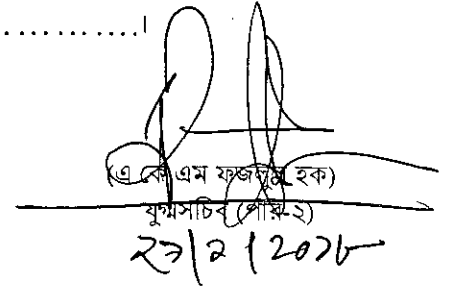 (এ কে এম ফজলুল হক)
যুগ্মসচিব (পার-২)
২১|২|২০১৮